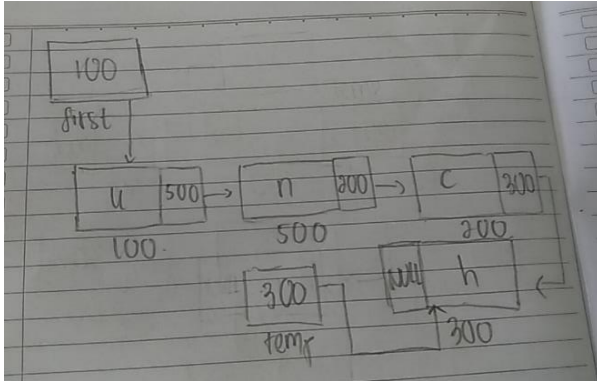 100
first
u 500 n 200 c 300
100 500 200
300 null h
temp 300